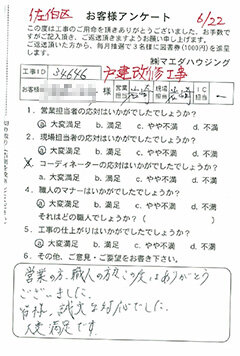 佐伯区 お客様アンケート 6/22
この度は工事のご用命を頂きありがとうございました。お手数で
すがご記入頂き、ご返送頂きますようお願い申し上げます。
ご返送頂いた方から、毎月抽選で3名様に図書券(1000円)を進呈
します。 ㈱マエダハウジング
工事ID 34646 戸建改修工事
お客様名 様 営業担当 現場担当 IC担当
1. 営業担当者の応対はいかがでしたでしょうか？
ⓐ 大変満足 b. 満足 c. やや不満 d. 不満
2. 現場担当者の応対はいかがでしたでしょうか？
ⓐ 大変満足 b. 満足 c. やや不満 d. 不満
X コーディネーターの応対はいかがでしたでしょうか？
a. 大変満足 b. 満足 c. やや不満 d. 不満
4. 職人のマナーはいかがでしたでしょうか？
ⓐ 大変満足 b. 満足 c. やや不満 d. 不満
それはどの職人でしょうか？（ ）
5. 工事の仕上がりはいかがでしたでしょうか？
ⓐ 大変満足 b. 満足 c. やや不満 d. 不満
6. その他、ご意見・ご要望をお書き下さい。
営業の方、職人の方々この度はありがとう
ございました。
皆様、誠実な対応でした。
大変満足です。